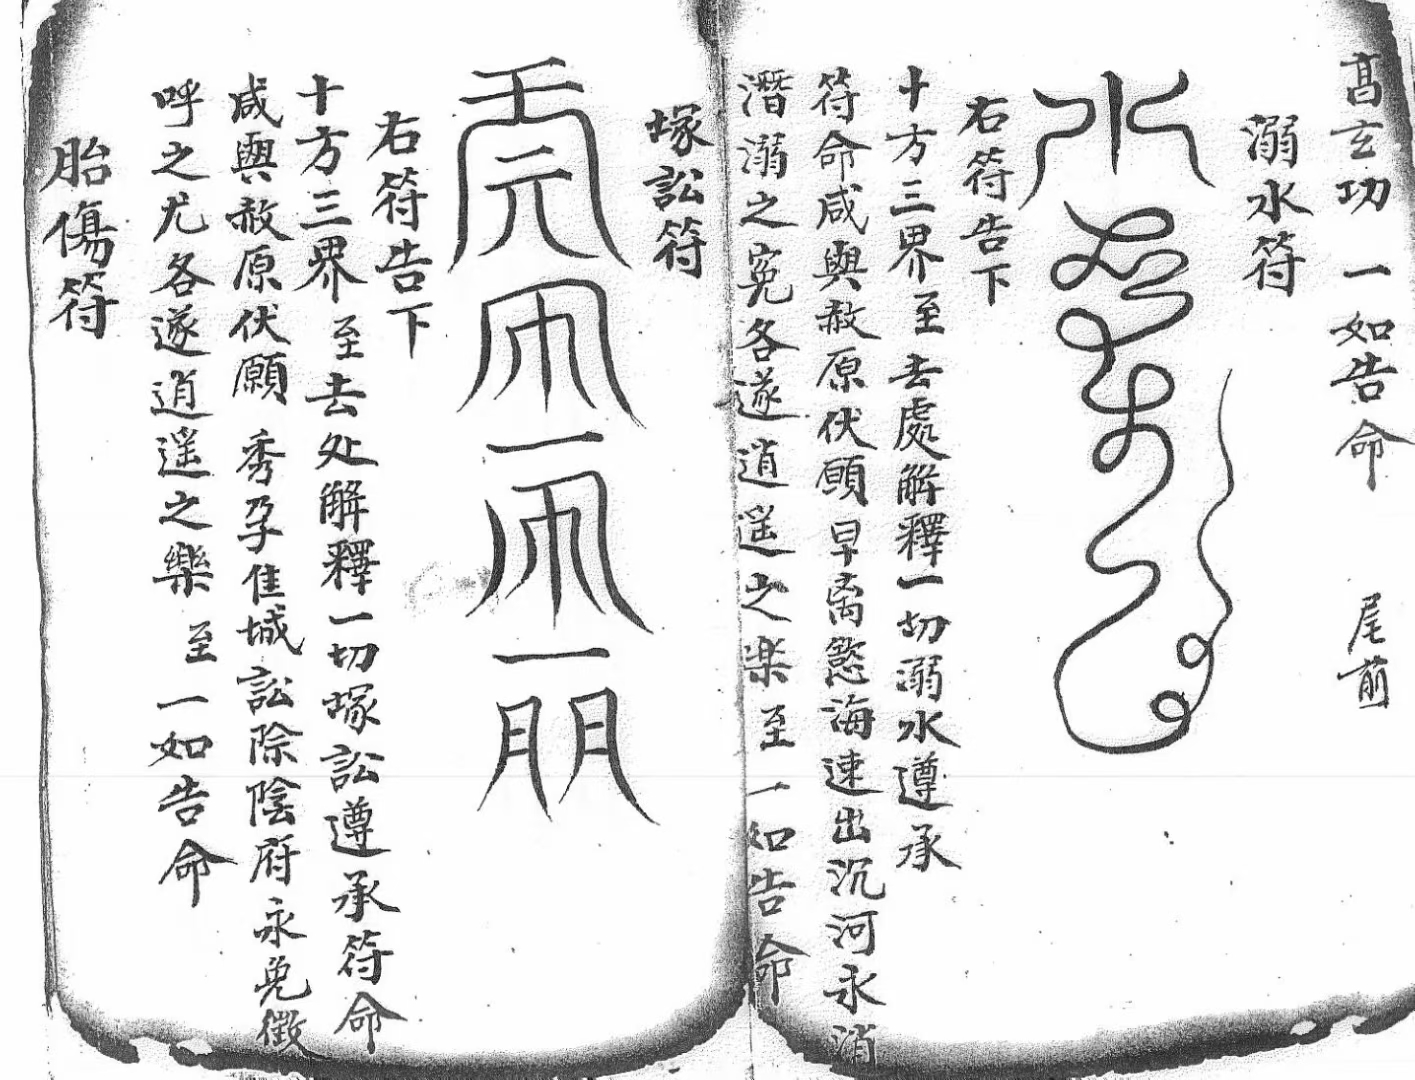 高玄功一如告命 尾前
溺水符
右符告下
十方三界至去處解釋一切溺水遵承
符命咸與赦原伏願早离慾海速出沉河永消
潛溺之冤各遂逍遥之楽至一如告命
塚訟符
右符告下
十方三界至去处解釋一切塚訟遵承符命
咸與赦原伏願秀孕佳城訟除陰府永免徵
呼之尤各遂逍遥之樂至一如告命
胎傷符